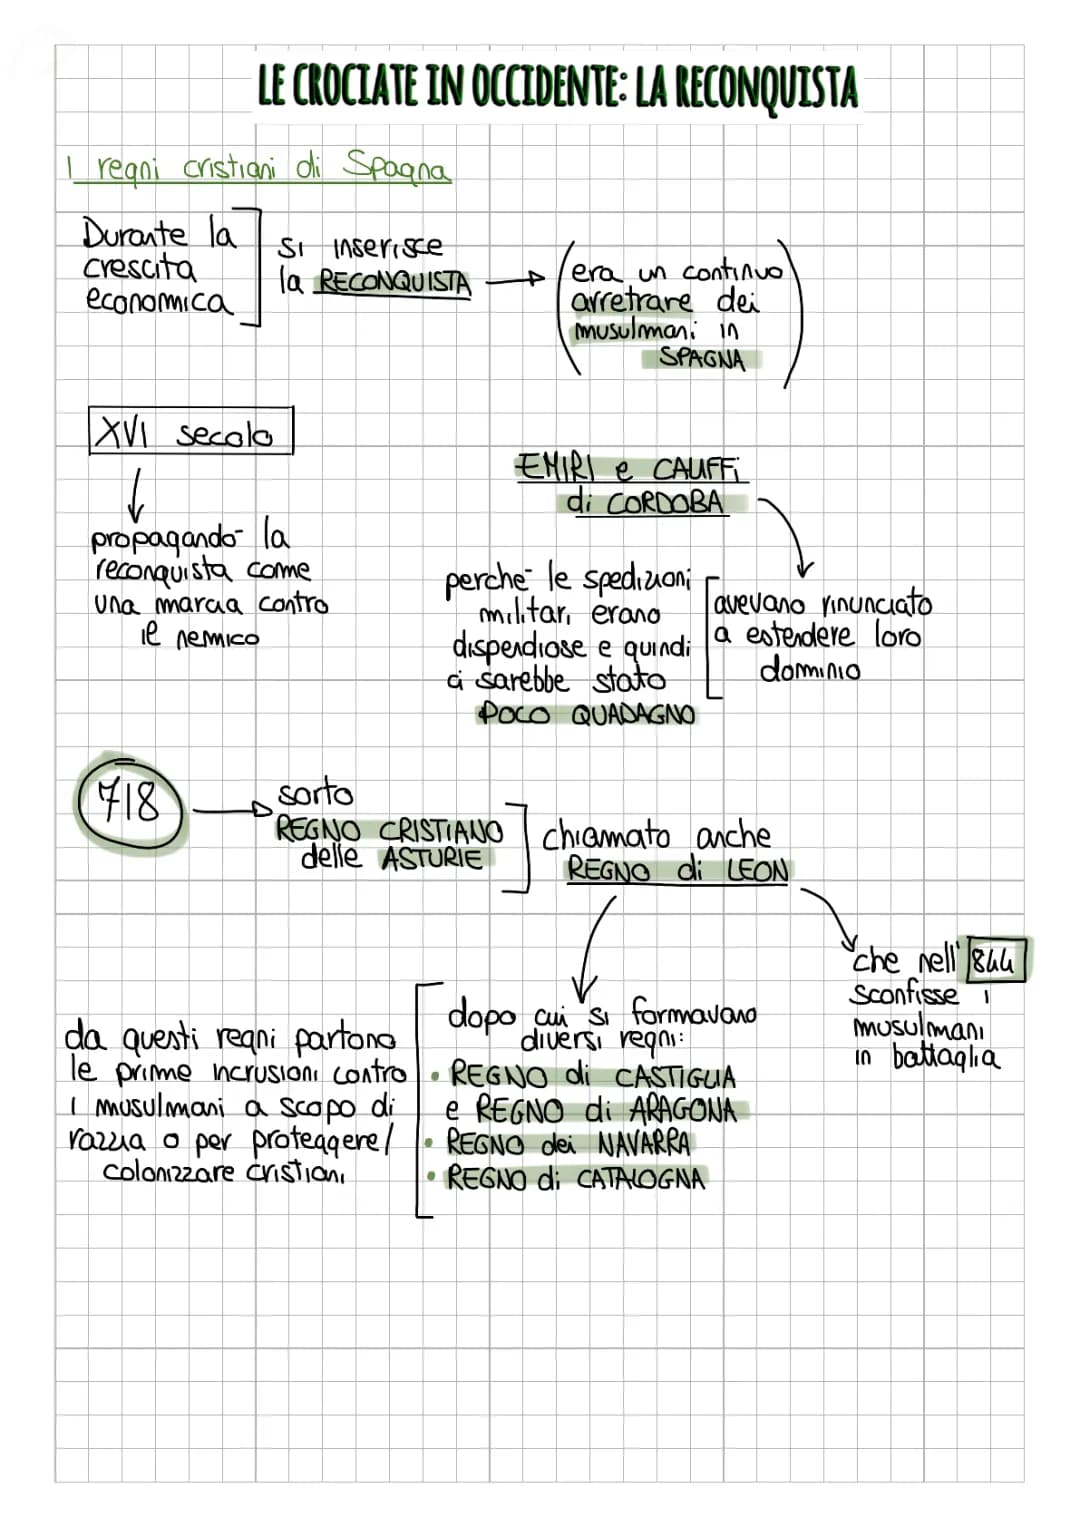 LE CROCIATE IN OCCIDENTE: LA RECONQUISTA
I regni cristiani di Spagna
Durante la
crescita
economica
si inserisce
la RECONQUISTA
era un continuo
arretrare dei
musulmani in
SPAGNA
XVI secolo
propagando la
reconquista come
una marcia contro
il nemico
EMIRI e CALIFFI
di CORDOBA
avevano rinunciato
a estendere loro
dominio
perché le spedizioni
militari erano
dispendiose e quindi
ci sarebbe stato
POCO QUADAGNO
718
sorto
REGNO CRISTIANO
delle ASTURIE
chiamato anche
REGNO di LEON
che nell' 844
sconfisse i
musulmani
in battaglia
dopo cui si formavano
diversi regni:
• REGNO di CASTIGLIA
e REGNO di ARAGONA
• REGNO dei NAVARRA
• REGNO di CATALOGNA
da questi regni partono
le prime incrusioni contro
i musulmani a scopo di
razzia o per proteggere/
colonizzare cristiani